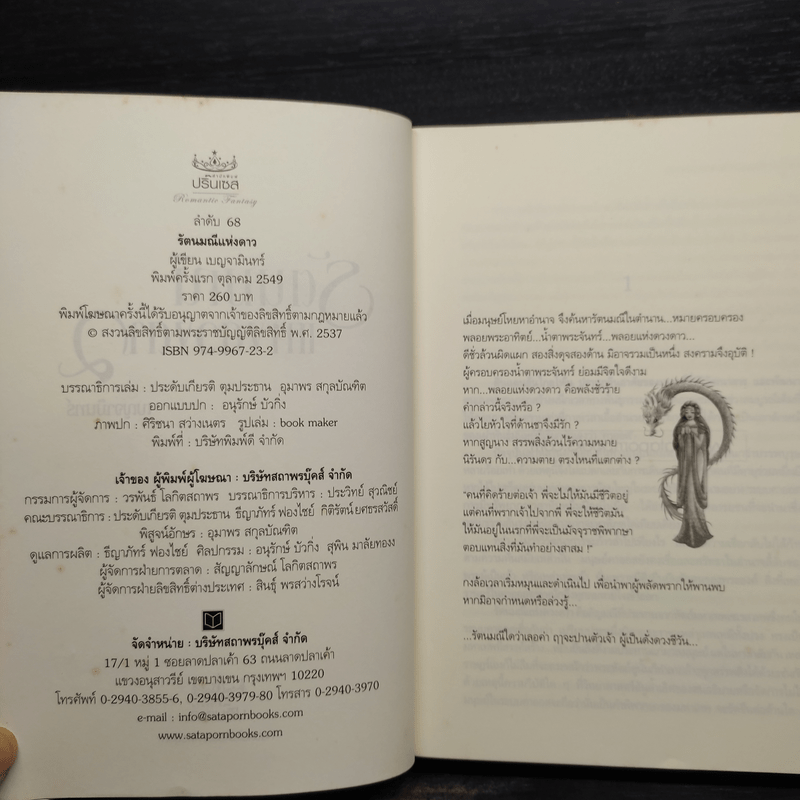 สำนักพิมพ์
ปริ๊นเซส
Romantic Fantasy
ลำดับ 68
รัตนมณีแห่งดาว
ผู้เขียน เบญจามินทร์
พิมพ์ครั้งแรก ตุลาคม 2549
ราคา 260 บาท
พิมพ์โฆษณาครั้งนี้ได้รับอนุญาตจากเจ้าของลิขสิทธิ์ตามกฎหมายแล้ว
© สงวนลิขสิทธิ์ตามพระราชบัญญัติลิขสิทธิ์ พ.ศ. 2537
ISBN 974-9967-23-2
บรรณาธิการเล่ม : ประดับเกียรติ ตุมประธาน อุมาพร สกุลบัณฑิต
ออกแบบปก : อนุรักษ์ บัวกิ่ง
ภาพปก : ศิริชนา สว่างเนตร รูปเล่ม : book maker
พิมพ์ที่ : บริษัทพิมพ์ดี จำกัด
เจ้าของ ผู้พิมพ์ผู้โฆษณา : บริษัทสถาพรบุ๊คส์ จำกัด
กรรมการผู้จัดการ : วรพันธ์ โลกิตสถาพร บรรณาธิการบริหาร : ประวิทย์ สุวณิชย์
คณะบรรณาธิการ : ประดับเกียรติ ตุมประธาน ธีญาภัทร์ ฟองไชย์ กิติรัตน์ ยศธรสวัสดิ์
พิสูจน์อักษร : อุมาพร สกุลบัณฑิต
ดูแลการผลิต : ธีญาภัทร์ ฟองไชย์ ศิลปกรรม : อนุรักษ์ บัวกิ่ง สุพิน มาลัยทอง
ผู้จัดการฝ่ายการตลาด : สัญญาลักษณ์ โลกิตสถาพร
ผู้จัดการฝ่ายลิขสิทธิ์ต่างประเทศ : สินธุ์ พรสว่างโรจน์
จัดจำหน่าย : บริษัทสถาพรบุ๊คส์ จำกัด
17/1 หมู่ 1 ซอยลาดปลาเค้า 63 ถนนลาดปลาเค้า
แขวงอนุสาวรีย์ เขตบางเขน กรุงเทพฯ 10220
โทรศัพท์ 0-2940-3855-6, 0-2940-3979-80 โทรสาร 0-2940-3970
e-mail : info@satapornbooks.com
www.satapornbooks.com
เมื่อมนุษย์โหยหาอำนาจ จึงค้นหารัตนมณีในตำนาน...หมายครอบครอง
พลอยพระอาทิตย์...น้ำตาพระจันทร์...พลอยแห่งดวงดาว...
ดีชั่วล้วนผิดแผก สองสิ่งดุจสองด้าน มิอาจรวมเป็นหนึ่ง สงครามจึงอุบัติ !
ผู้ครอบครองน้ำตาพระจันทร์ ย่อมมีจิตใจดีงาม
หาก...พลอยแห่งดวงดาว คือพลังชั่วร้าย
คำกล่าวนี้จริงหรือ ?
แล้วไยหัวใจที่ด้านชาจึงมีรัก ?
หากสูญนาง สรรพสิ่งล้วนไร้ความหมาย
นิรันดร กับ...ความตาย ตรงไหนที่แตกต่าง ?
"คนที่คิดร้ายต่อเจ้า พี่จะไม่ให้มันมีชีวิตอยู่
แต่คนที่พรากเจ้าไปจากพี่ พี่จะให้ชีวิตมัน
ให้มันอยู่ในนรกที่พี่จะเป็นมัจจุราชพิพากษา
ตอบแทนสิ่งที่มันทำอย่างสาสม !"
กงล้อเวลาเริ่มหมุนและดำเนินไป เพื่อนำพาผู้พลัดพรากให้พานพบ
หากมิอาจกำหนดหรือล่วงรู้...
...รัตนมณีใดว่าเลอค่า ฤๅจะปานตัวเจ้า ผู้เป็นดั่งดวงชีวัน...